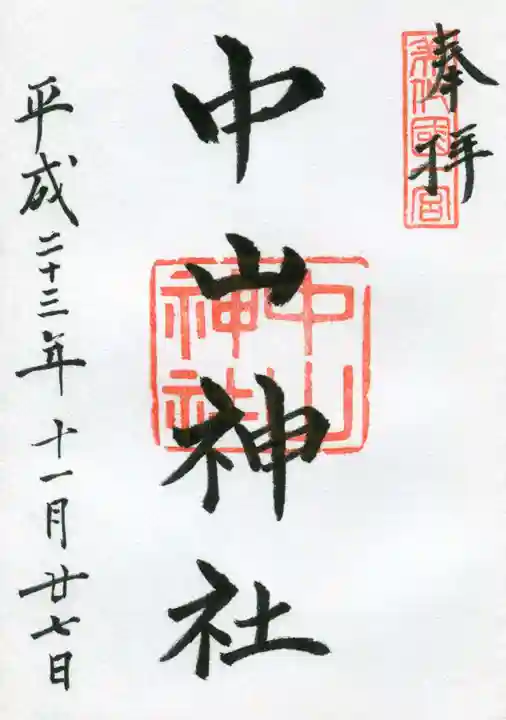 奉拝
中山神社
中山
神社
平成二十三年十一月廿七日